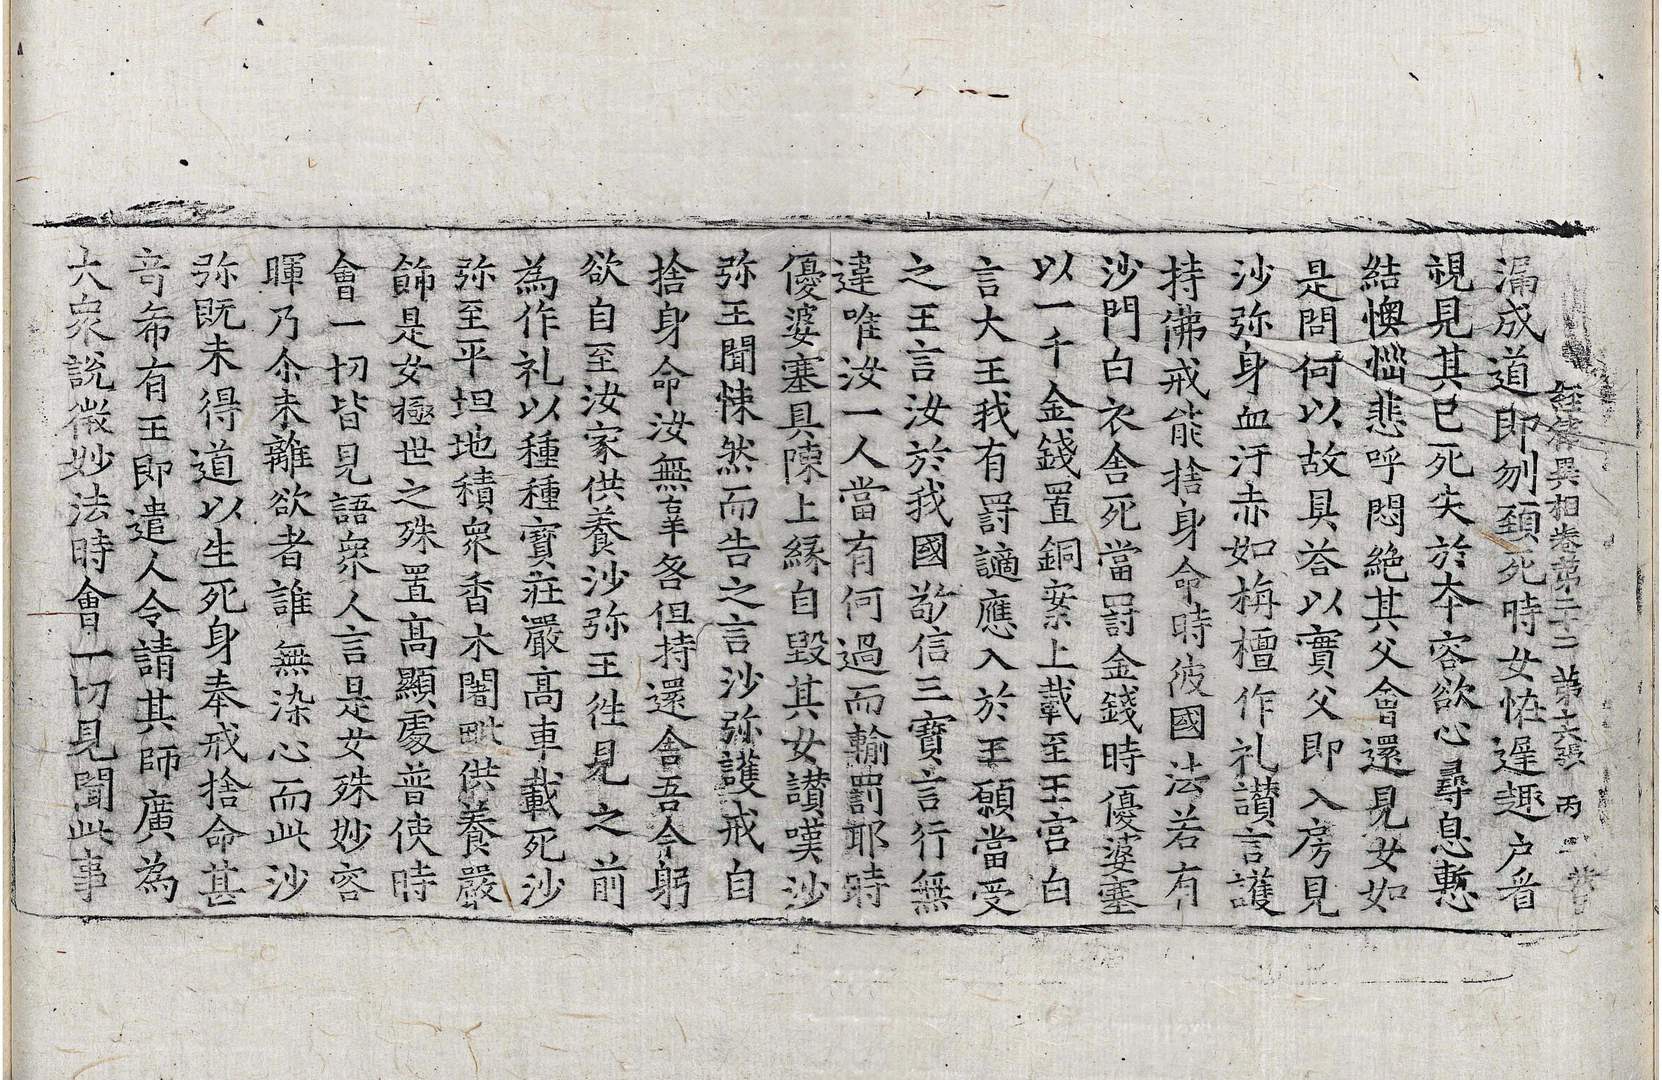 經律異相卷第二十二 第六張 丙
漏成道即刎頚死時女恠遅趣户看
視見其已死失於本容欲心尋息慙
結懊惱悲呼悶絶其父會還見女如
是問何以故具荅以實父即入房見
沙弥身血汙赤如栴檀作礼讃言護
持佛戒能捨身命時彼國法若有
沙門白衣舎死當罸金錢時優婆塞
以一千金錢置銅案上載至王宫白
言大王我有罸讁應入於王願當受
之王言汝於我國敬信三寳言行無
違唯汝一人當有何過而輸罰耶時
優婆塞具陳上縁自毀其女讃嘆沙
弥王聞悚然而告之言沙弥護戒自
捨身命汝無辜咎但持還舎吾今躬
欲自至汝家供養沙弥王徃見之前
為作礼以種種寳莊嚴髙車載死沙
弥至平坦地積衆香木闍毗供養嚴
飾是女極世之殊置髙顯處普使時
會一切皆見語衆人言是女殊妙容
暉乃尒未離欲者誰無染心而此沙
弥既未得道以生死身奉戒捨命甚
竒希有王即遣人令請其師廣為
大衆說微妙法時會一切見聞此事